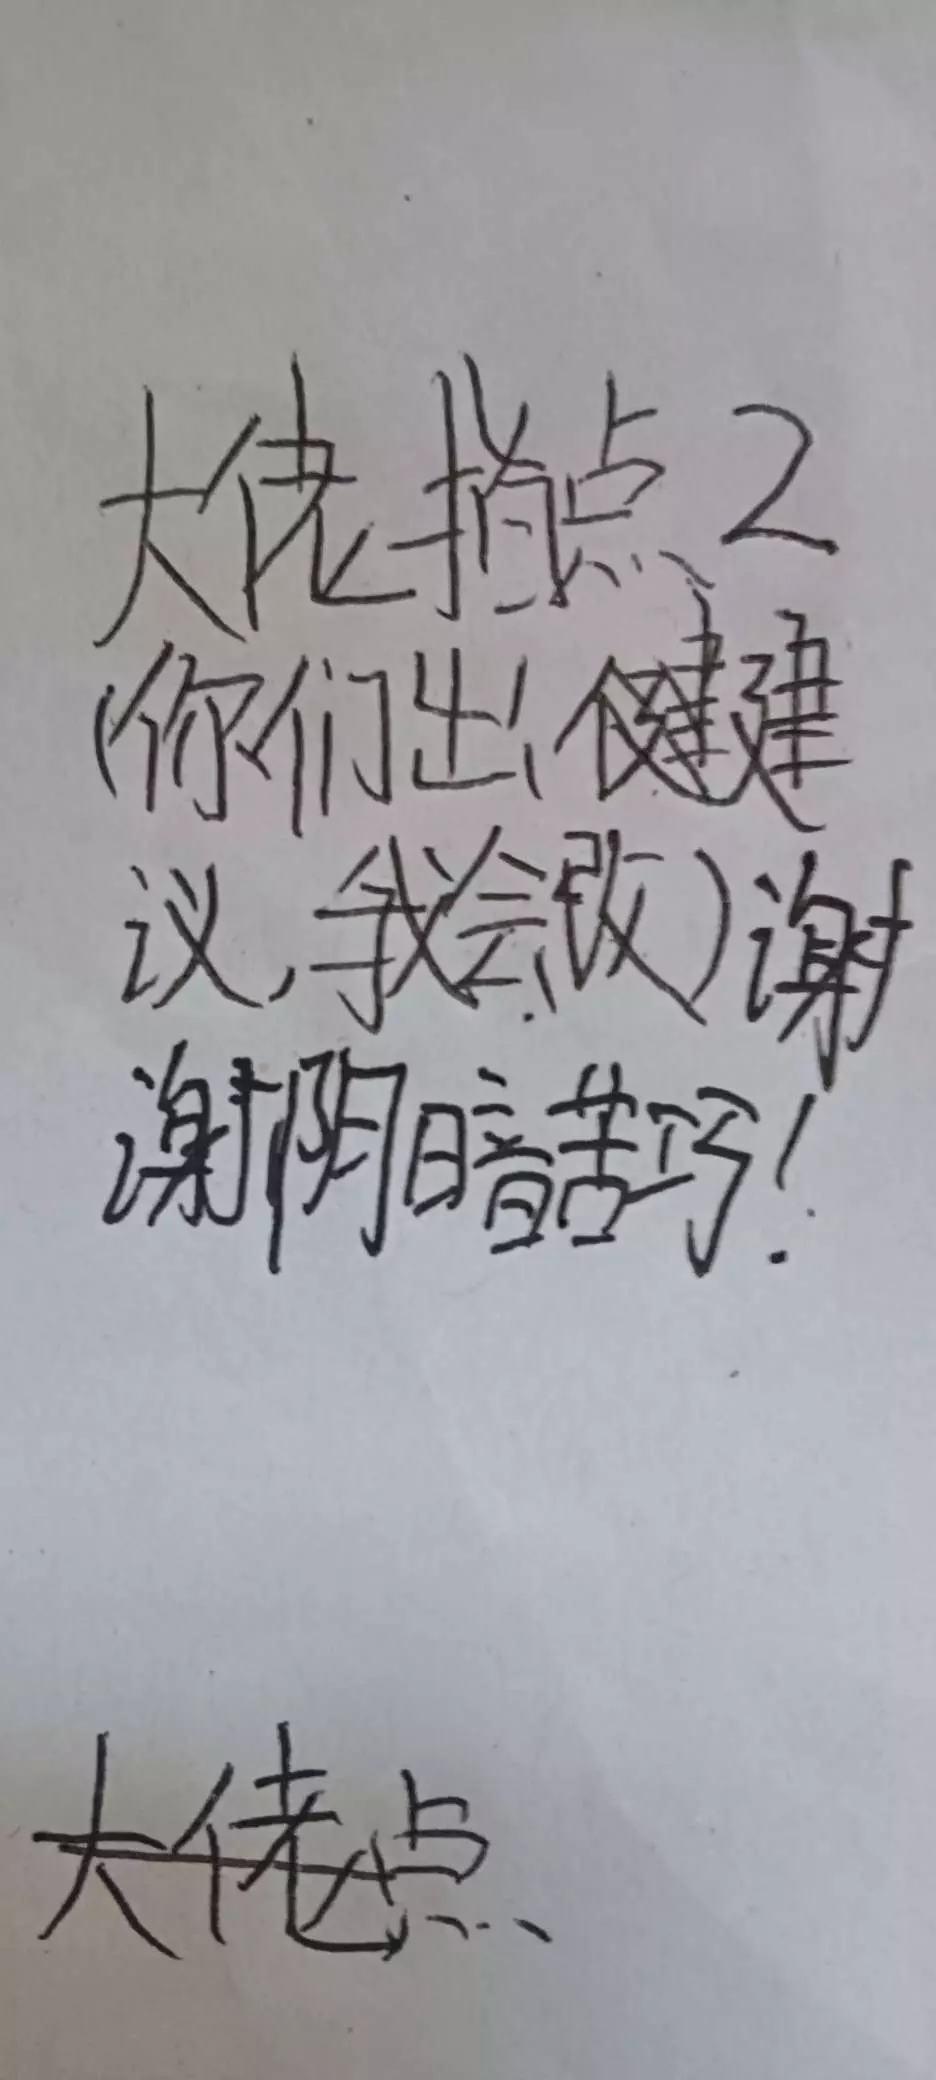 大佬指点2
(你们出,建
议,我会改)谢
谢阴暗苦巧!
大佬点